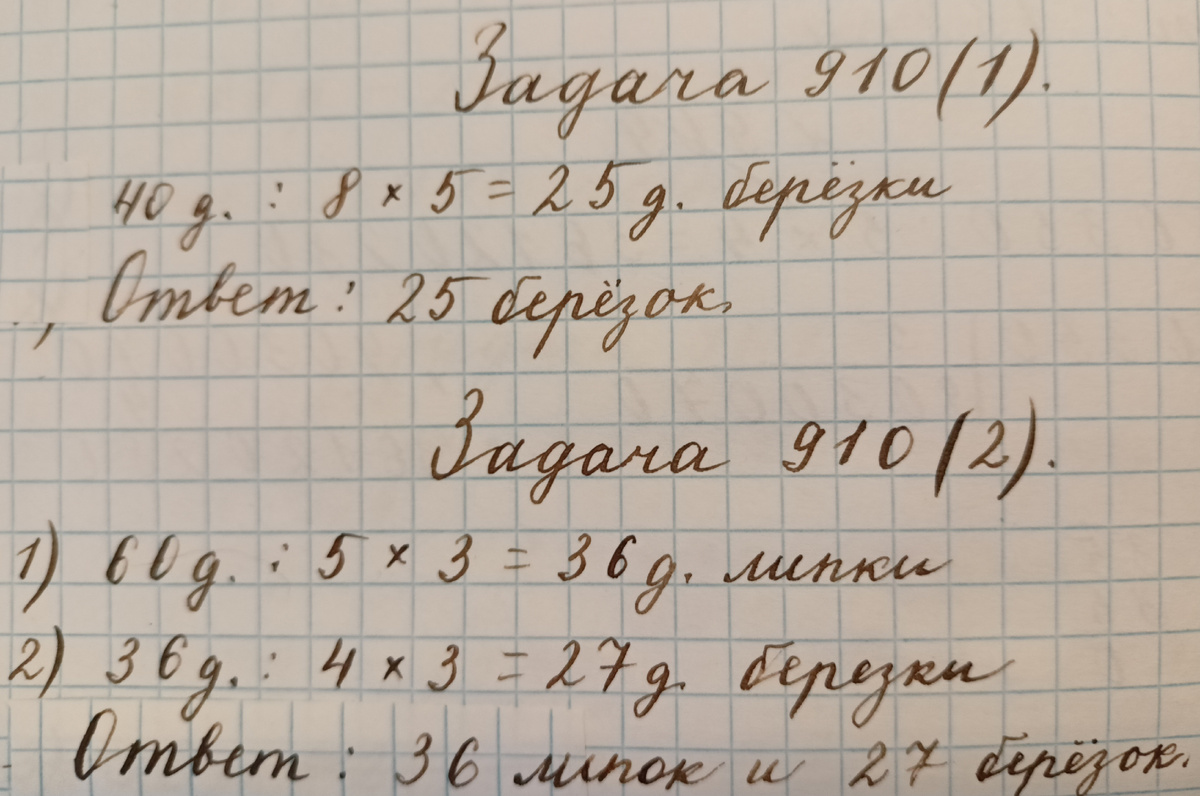 Задача 910(1).
40 д. : 8 × 5 = 25 д. берёзки
Ответ: 25 берёзок.
Задача 910(2).
1) 60 д. : 5 × 3 = 36 д. липки
2) 36 д. : 4 × 3 = 27 д. березки
Ответ: 36 липок и 27 берёзок.